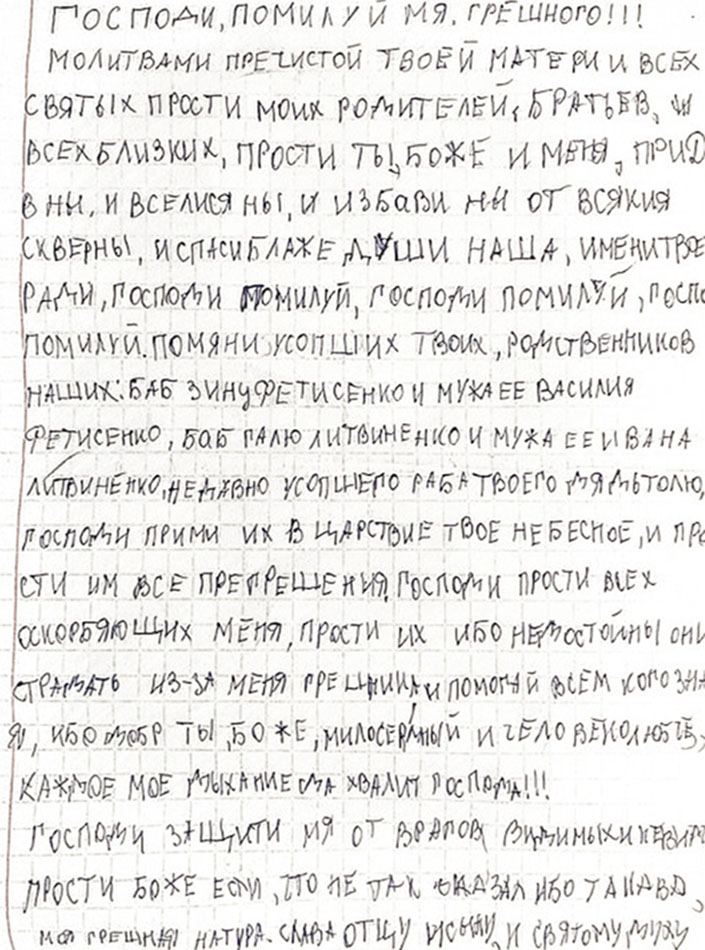 ГОСПОДИ, ПОМИЛУЙ МЯ, ГРЕШНОГО!!!
МОЛИТВАМИ ПРЕЧИСТОЙ ТВОЕЙ МАТЕРИ И ВСЕХ
СВЯТЫХ ПРОСТИ МОИХ РОДИТЕЛЕЙ, БРАТЬЕВ, И
ВСЕХ БЛИЗКИХ, ПРОСТИ ТЫ, БОЖЕ И МЕНЯ, ПРИД
В НЫ, И ВСЕЛИСЯ НЫ, И ИЗБАВИ НЫ ОТ ВСЯКИЯ
СКВЕРНЫ, И СПАСИ БЛАЖЕ ДУШИ НАША, ИМЕНИ ТВОЕ
РАДИ, ГОСПОДИ ПОМИЛУЙ, ГОСПОДИ ПОМИЛУЙ, ГОСПО
ПОМИЛУЙ. ПОМЯНИ УСОПШИХ ТВОИХ, РОДСТВЕННИКОВ
НАШИХ: БАБ ЗИНУ ФЕТИСЕНКО И МУЖА ЕЕ ВАСИЛИЯ
ФЕТИСЕНКО, БАБ ГАЛЮ ЛИТВИНЕНКО И МУЖА ЕЕ ИВАНА
ЛИТВИНЕНКО, НЕДАВНО УСОПШЕГО РАБА ТВОЕГО ДЯДЬ ТОЛЮ,
ГОСПОДИ ПРИМИ ИХ В ЦАРСТВИЕ ТВОЕ НЕБЕСНОЕ, И ПРО
СТИ ИМ ВСЕ ПРЕГРЕШЕНИЯ, ГОСПОДИ ПРОСТИ ВСЕХ
ОСКОРБЯЮЩИХ МЕНЯ, ПРОСТИ ИХ ИБО НЕДОСТОЙНЫ ОНИ
СТРАДАТЬ ИЗ-ЗА МЕНЯ ГРЕШНИКА И ПОМОГАЙ ВСЕМ КОГО ЗНА
Я, ИБО ДОБР ТЫ, БОЖЕ, МИЛОСЕРДНЫЙ И ЧЕЛОВЕКОЛЮБЕЦ,
КАЖДОЕ МОЕ ДЫХАНИЕ ДА ХВАЛИТ ГОСПОДА!!!
ГОСПОДИ ЗАЩИТИ МЯ ОТ ВРАГОВ ВИДИМЫХ И НЕВИДИ
ПРОСТИ БОЖЕ ЕСЛИ, ЧТО НЕ ТАК СКАЗАЛ ИБО ТАКАВА
МОЯ ГРЕШНАЯ НАТУРА. СЛАВА ОТЦУ И СЫНУ, И СВЯТОМУ ДУХУ